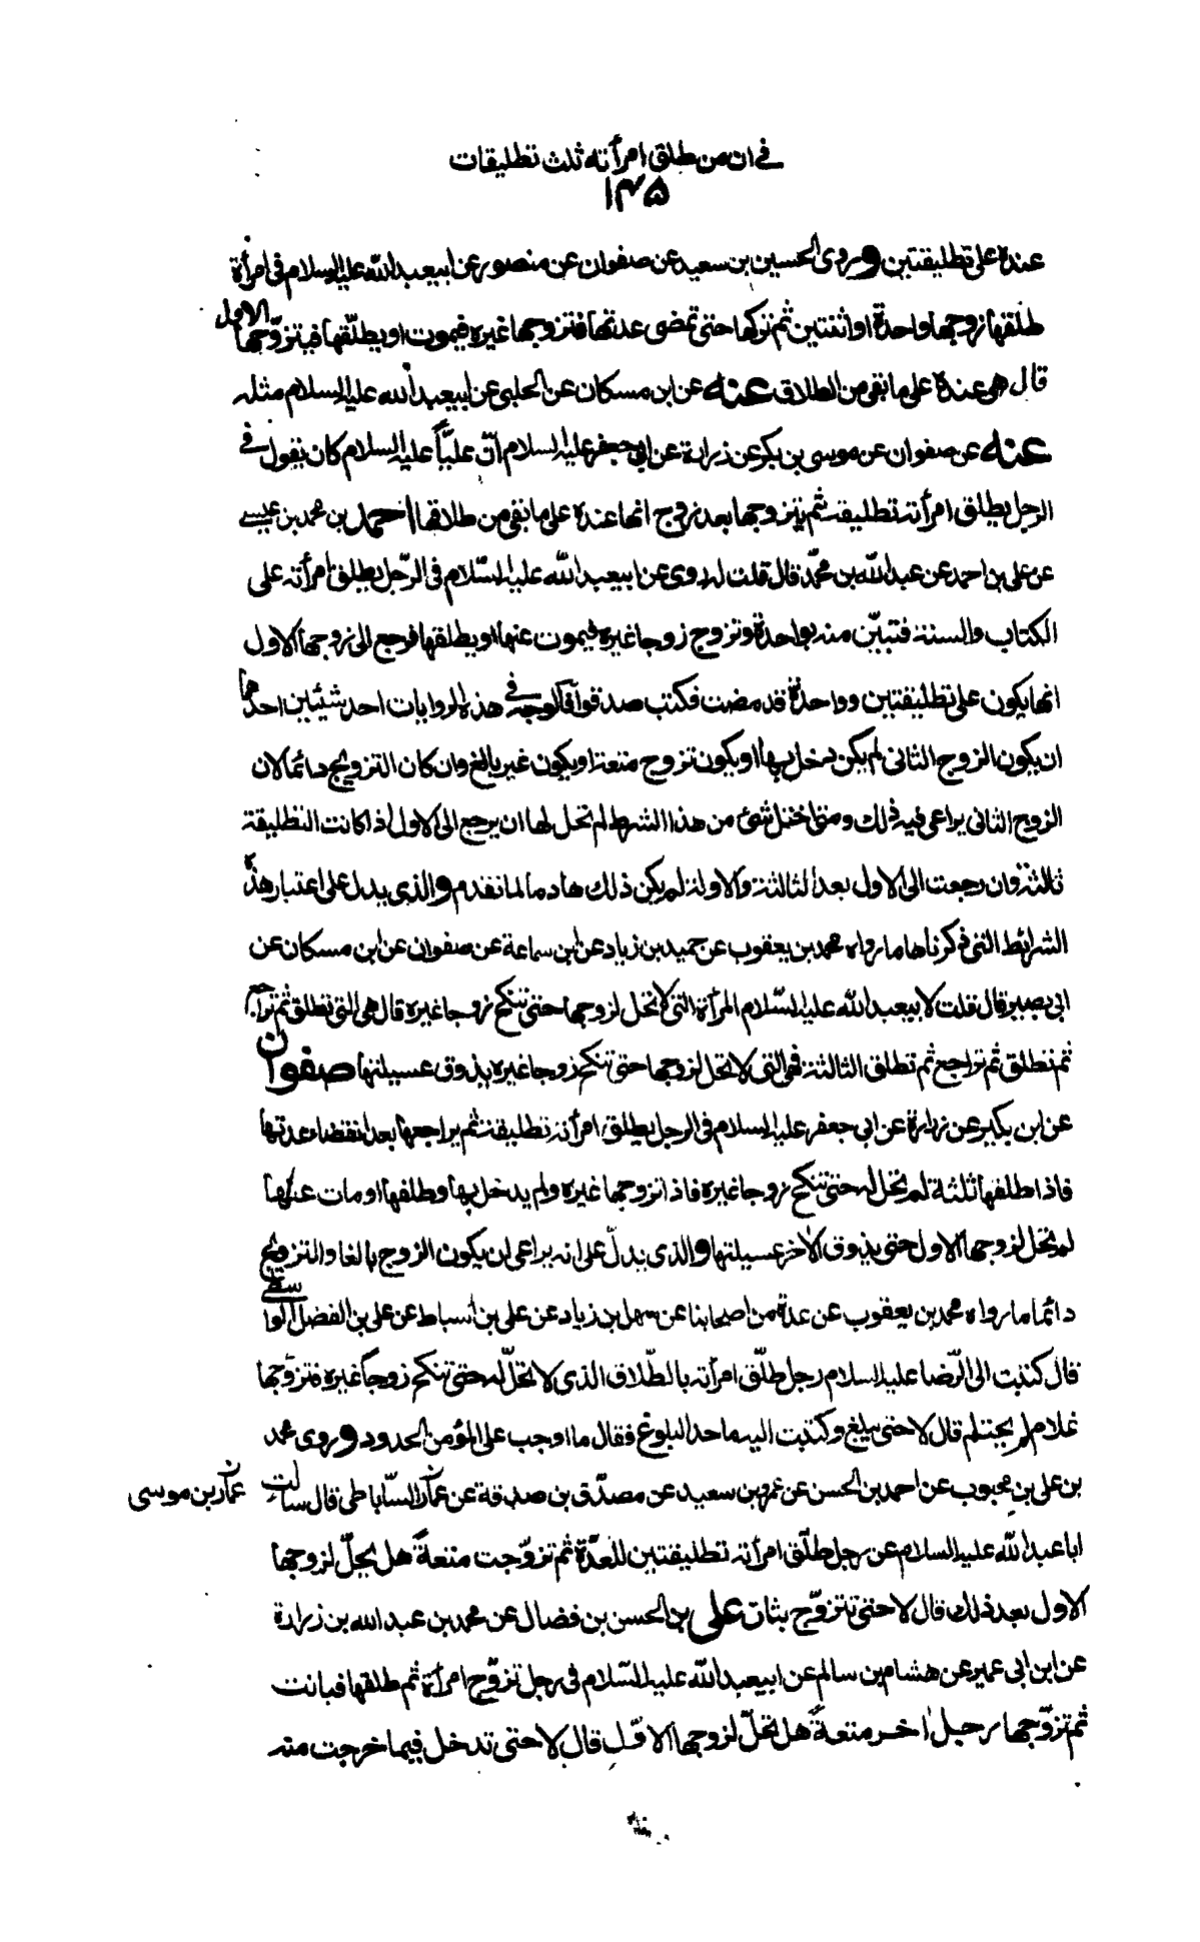 في ان من طلق امرأته ثلث تطليقات
١٤٥
عنده على تطليقتين وروى الحسين بن سعيد عن صفوان عن منصور عن ابيعبد الله عليه السلام في امرأة
طلقها زوجها واحدة او اثنتين ثم تركها حتى تمضى عدتها فتزوجها غيره فيموت او يطلّقها فيتزوّجها الاول
قال هى عنده على ما بقى من الطلاق عنه عن ابن مسكان عن الحلبى عن ابيعبد الله عليه السلام مثله
عنه عن صفوان عن موسى بن بكر عن زرارة عن ابى جعفر عليه السلام انّ عليّاً عليه السلام كان يقول في
الرجل يطلق امرأته تطليقة ثم يتزوجها بعد زوج انها عنده على ما بقى من طلاقها احمد بن محمد بن عيسى
عن على بن احمد عن عبد الله بن محمّد قال قلت له روى عن ابيعبد الله عليه السّلام فى الرّجل يطلق امرأته على
الكتاب والسنة فتبيّن منه بواحدة وتزوج زوجا غيره فيموت عنها او يطلقها فرجع الى زوجها الاول
انها يكون على تطليقتين وواحدة قد مضت فكتب صدقوا فالوجه في هذه الروايات احد شيئين احدهما
ان يكون الزوج الثانى لم يكن دخل بها او يكون تزوج متعة او يكون غير بالغ وان كان التزويج دائما لان
الزوج الثانى يراعى فيه ذلك ومتى اختل شئ من هذا الشرط لم تحل لها ان يرجع الى الاول اذا كانت التطليقة
ثالثة وان رجعت الى الاول بعد الثالثة والاولة لم يكن ذلك هادما لما تقدم والذى يدل على اعتبار هذه
الشرائط التى ذكرناها ما رواه محمد بن يعقوب عن حميد بن زياد عن ابن سماعة عن صفوان عن ابن مسكان عن
ابى بصير قال قلت لابيعبد الله عليه السّلام المرأة التى لا تحل لزوجها حتى تنكح زوجا غيره قال هى التى تطلق ثم تراجع
ثم تطلق ثم تراجع ثم تطلق الثالثة فهى التى لا تحل لزوجها حتى تنكح زوجا غيره يذوق عسيلتها صفوان
عن ابن بكير عن زرارة عن ابى جعفر عليه السلام فى الرجل يطلق امرأته تطليقة ثم يراجعها بعد انقضاء عدتها
فاذا طلقها ثلثة لم تحل له حتى تنكح زوجا غيره فاذا تزوجها غيره ولم يدخل بها وطلقها او مات عنها
لم تحل لزوجها الاول حتى يذوق الاخر عسيلتها والذى يدلّ على انه يراعى ان يكون الزوج بالغا والتزويج
دائما ما رواه محمد بن يعقوب عن عدة من اصحابنا عن سهل بن زياد عن على بن أسباط عن على بن الفضل الواسطى
قال كتبت الى الرّضا عليه السلام رجل طلّق امرأته بالطّلاق الذى لا تحلّ له حتى تنكح زوجاً غيره فتزوّجها
غلام لم يحتلم قال لا حتى يبلغ وكتبت اليه ما حد البلوغ فقال ما اوجب على المؤمن الحدود وروى محمد
بن على بن محبوب عن احمد بن الحسن عن عمرو بن سعيد عن مصدّق بن صدقة عن عمّار السّاباطى قال سالت
عمّار بن موسى
ابا عبد الله عليه السلام عن رجل طلّق امرأته تطليقتين للعدّة ثم تزوّجت متعةً هل يحلّ لزوجها
الاول بعد ذلك قال لا حتى تتزوّج بثات على بن الحسن بن فضال عن محمد بن عبد الله بن زرارة
عن ابن ابى عمير عن هشام بن سالم عن ابيعبد الله عليه السّلام فى رجل تزوّج امرأة ثم طلقها فبانت
ثم تزوّجها رجل اخر متعةً هل تحلّ لزوجها الاوّل قال لا حتى تدخل فيما خرجت منه